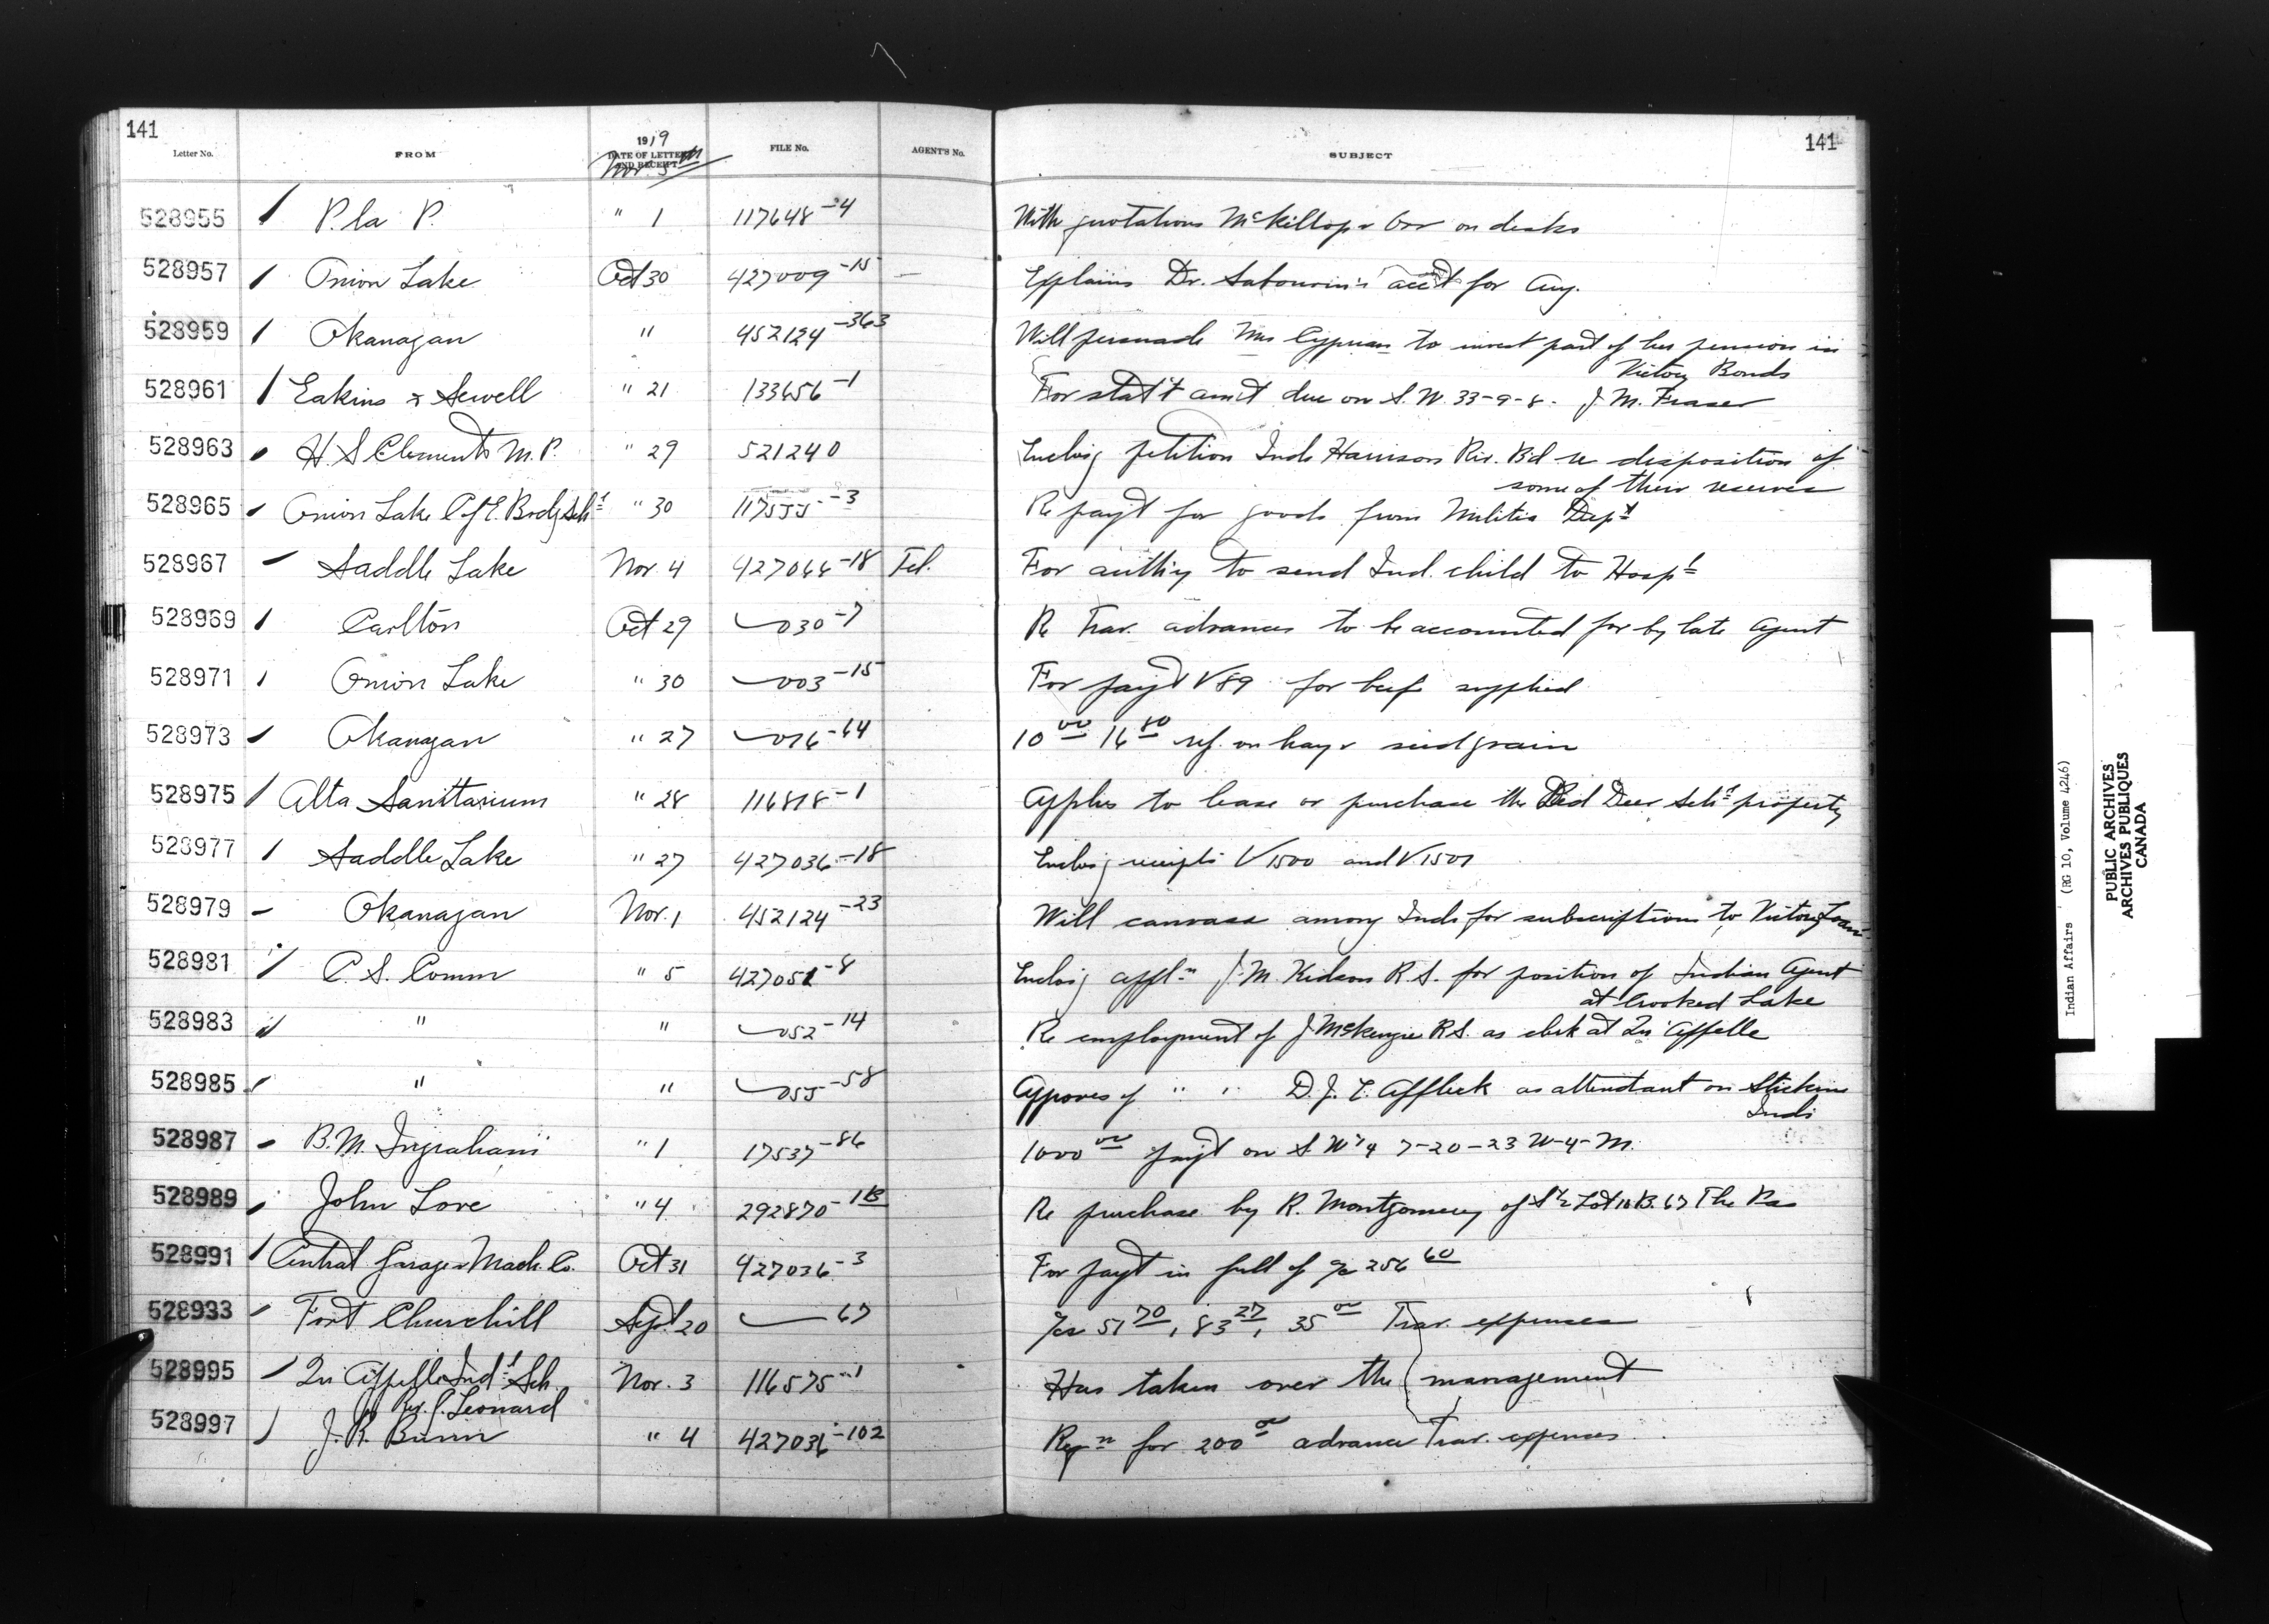 141
141
Letter No. FROM 1919 DATE OF LETTER AND RECEIPT FILE No. AGENT'S No. SUBJECT
Nov 5th
528955 P. la P. " 1 117648-4 With quotations McKillop & Orr on desks
528957 Onion Lake Oct 30 427009-15 — Explains Dr. Sabourin's acct for Aug.
528959 Okanagan " 452124-363 Will persuade Mrs Cyprian to invest part of her pension in
Victory Bonds
528961 Eakins & Sewell " 21 133656-1 For stat't am't due on S.W. 33-9-8. J. M. Fraser
528963 H. S Clements M.P. " 29 521240 Enclos'g petition Inds Harrison Riv. B'd re disposition of
some of their reserves
528965 Onion Lake C of E. Brdg Schl " 30 117555-3 Re pay't for goods from Militia Dept
528967 Saddle Lake Nov. 4 427064-18 Tel. For auth'y to send Ind. child to Hospl
528969 Carlton Oct 29 030-7 Re Trav. advances to be accounted for by late Agent
528971 Onion Lake " 30 003-15 For pay't V 89 for beef supplied
528973 Okanagan " 27 076-64 10 00 16 80 ref. on hay & seed grain
528975 Alta Sanitarium " 28 116818-1 Applies to lease or purchase the Red Deer Schl property
528977 Saddle Lake " 27 427036-18 Enclos'g receipts V 1500 and V 1507
528979 Okanagan Nov. 1 452124-23 Will canvass among Inds for subscriptions to Victory Loan
528981 C. S. Comm " 5 427051-8 Enclos'g appln J. M. Kidson R.S. for position of Indian Agent
at Crooked Lake
528983 " " 052-14 Re employment of J McKenzie R.S. as clerk at Qu'Appelle
528985 " " 055-58 Approves of " " D. J. C. Affleck as attendant on Stickine
Inds
528987 B. M. Ingraham " 1 17537-86 1000 00 pay't on S.W 1/4 7-20-23 W-4-M.
528989 John Love " 4 292870-1B Re purchase by R. Montgomery of S 1/2 Lot 10 B. 67 The Pas
528991 Central Garage & Mach. Co. Oct 31 427036-3 For pay't in full of a/c 256 60
528933 Fort Churchill Sept. 20 67 51 70, 83 27, 35 00 Trav. expenses
528995 Qu'Appelle Indl Sch. Nov. 3 116575-1 Has taken over the management
Rev. J. Leonard
528997 J. R. Bunn " 4 427036-102 Reqn for 200 00 advance Trav. expenses
Indian Affairs (RG 10, Volume 4246)
PUBLIC ARCHIVES
ARCHIVES PUBLIQUES
CANADA